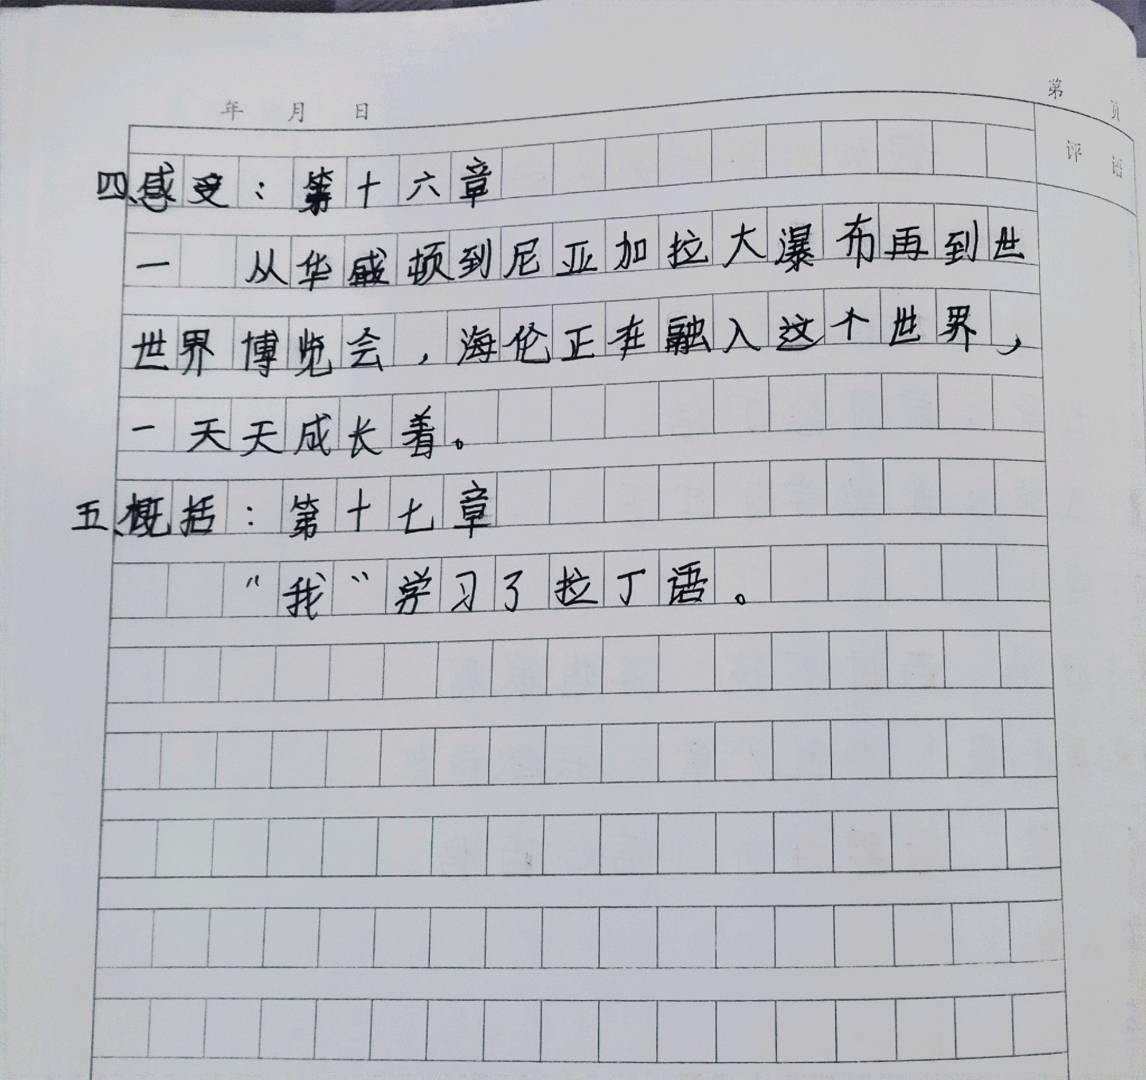 年 月 日
第 页
评 语
四、感受：第十六章
一 从华盛顿到尼亚加拉大瀑布再到世
世界博览会，海伦正在融入这个世界，
一天天成长着。
五、概括：第十七章
“我”学习了拉丁语。